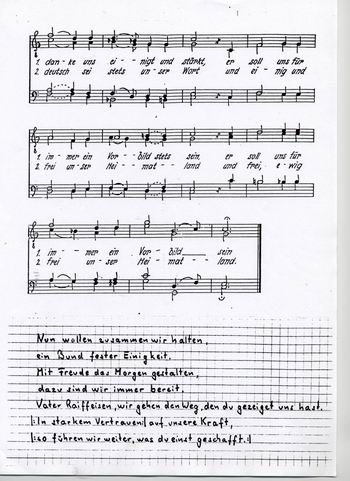 1. dan-ke uns ei-nigt und stärkt, er soll uns für
2. deutsch sei stets un-ser Wort und ei-nig und
1. im-mer ein Vor-bild stets sein, er soll uns für
2. frei un-ser Hei-mat-land und frei, e-wig
1. im-mer ein Vor-bild sein
2. frei un-ser Hei-mat-land.
Nun wollen zusammen wir halten,
ein Bund fester Einigkeit.
Mit Freude das Morgen gestalten,
dazu sind wir immer bereit.
Vater Raiffeisen, wir gehen den Weg, den du gezeiget uns hast.
|: In starkem Vertrauen :| auf unsere Kraft,
|: so führen wir weiter, was du einst geschafft. :|